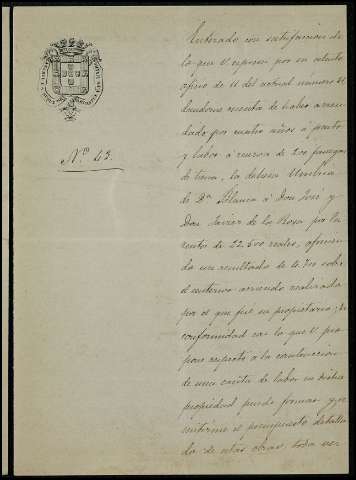 Nº 43.
Enterado con satisfaccion de
lo que V. expone por su atento
oficio de 11 del actual número 21
dandome cuenta de haber arren-
dado por cuatro años á pasto
y labor á reserva de 200 fanegas
de tierra, la dehesa
de Dª Blanca á Don José y
Don Javier de la Rosa por la
renta de 22.500 reales,
do un resultado de 4.700 sobre
el anterior arriendo realizado
por el que fué su propietario; de
conformidad con lo que V. pro-
pone respecto á la construccion
de una casita de labor en dicha
propiedad puede formar y
el presupuesto detalla-
do de estas obras, toda vez